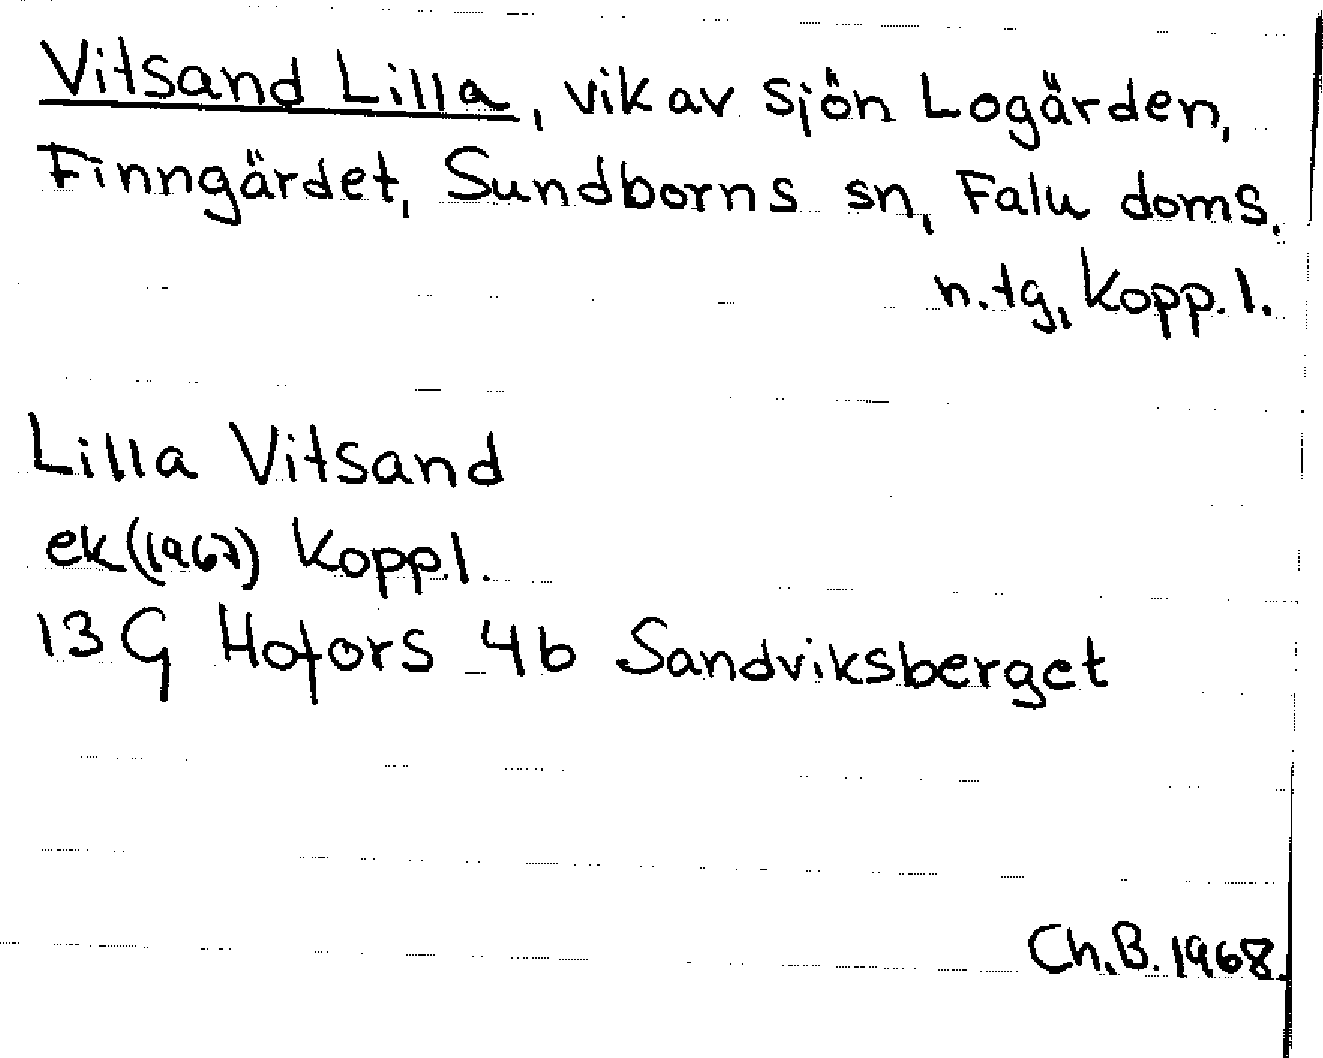 Vitsand Lilla, vik av sjön Logärden,
Finngärdet, Sundborns sn, Falu doms.
n. tg, Kopp. l.
Lilla Vitsand
ek (1967) Kopp.l.
13 G Hofors 4b Sandviksberget
Ch.B. 1968.